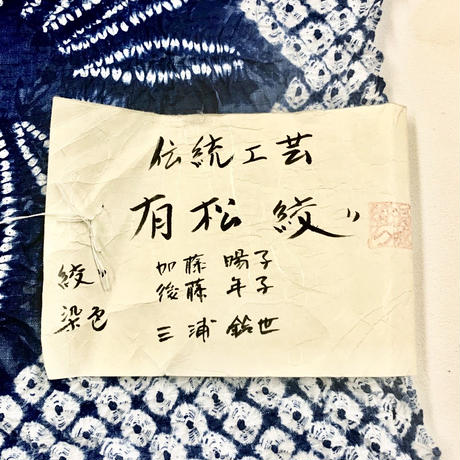 伝統工芸
有松絞り
絞り 加藤 陽子
後藤 年子
染色 三浦 鈴世